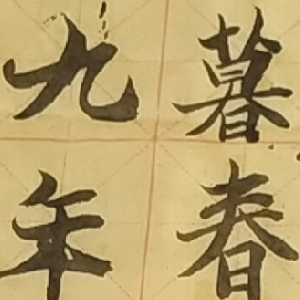 九年
暮春